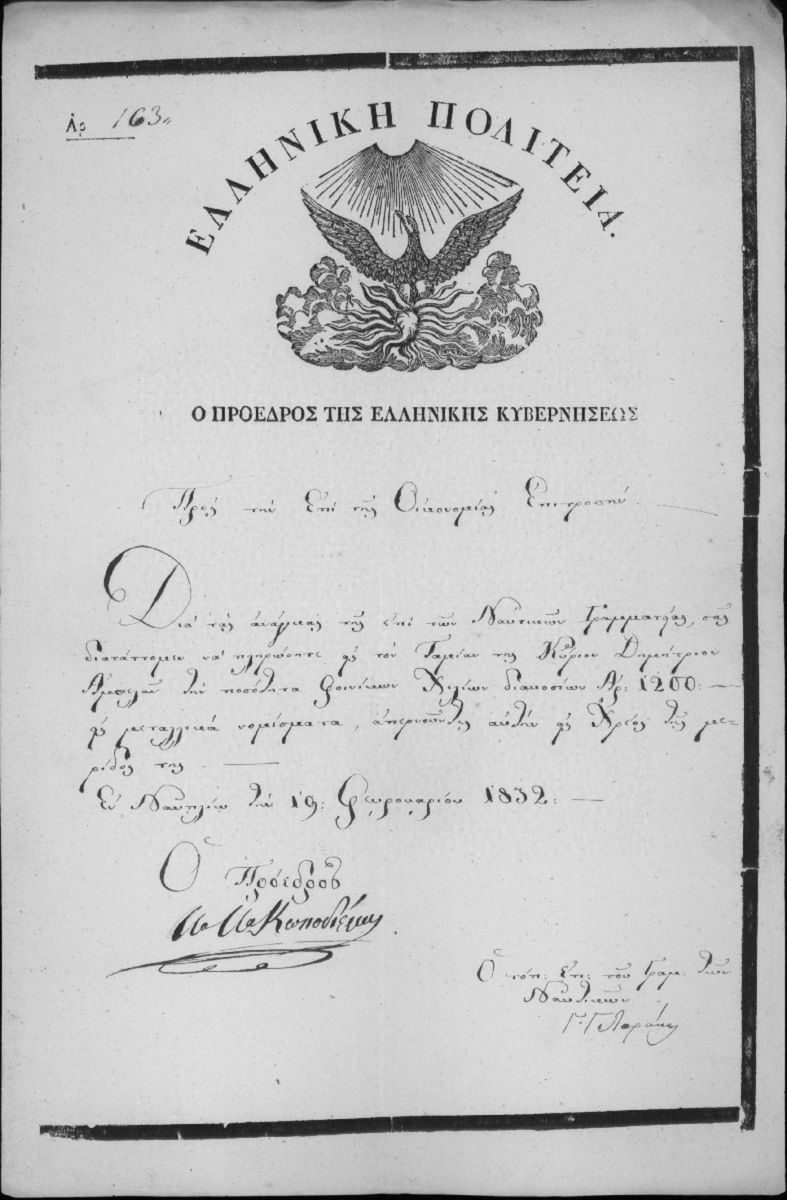 Ἀρ 163
ΕΛΛΗΝΙΚΗ ΠΟΛΙΤΕΙΑ.
Ο ΠΡΟΕΔΡΟΣ ΤΗΣ ΕΛΛΗΝΙΚΗΣ ΚΥΒΕΡΝΗΣΕΩΣ
Πρὸς τὴν Ἐπὶ τῆς Οἰκονομίας Ἐπιτροπήν.
Διὰ τὰς ἀνάγκας τῆς ἐπὶ τῶν Ναυτικῶν Γραμματείας, σᾶς
διατάττομεν νὰ πληρώσητε εἰς τὸν Ταμίαν της Κύριον Δημήτριον
Ἀμπελᾶν τὴν ποσότητα Φοινίκων Χιλίων διακοσίων Ἀρ: 1200: —
εἰς μεταλλικὰ νομίσματα, ἀπερνοῦντες αὐτὴν εἰς Χρέος τῆς με-
ρίδος της. —
Ἐν Ναυπλίῳ τὴν 19: Φεβρουαρίου 1832: —
Ὁ Πρόεδρος
Ὁ τόπ: Ἐπ: τοῦ Γραμ. τῶν
Ναυτικῶν
Γ. Γλαράκης